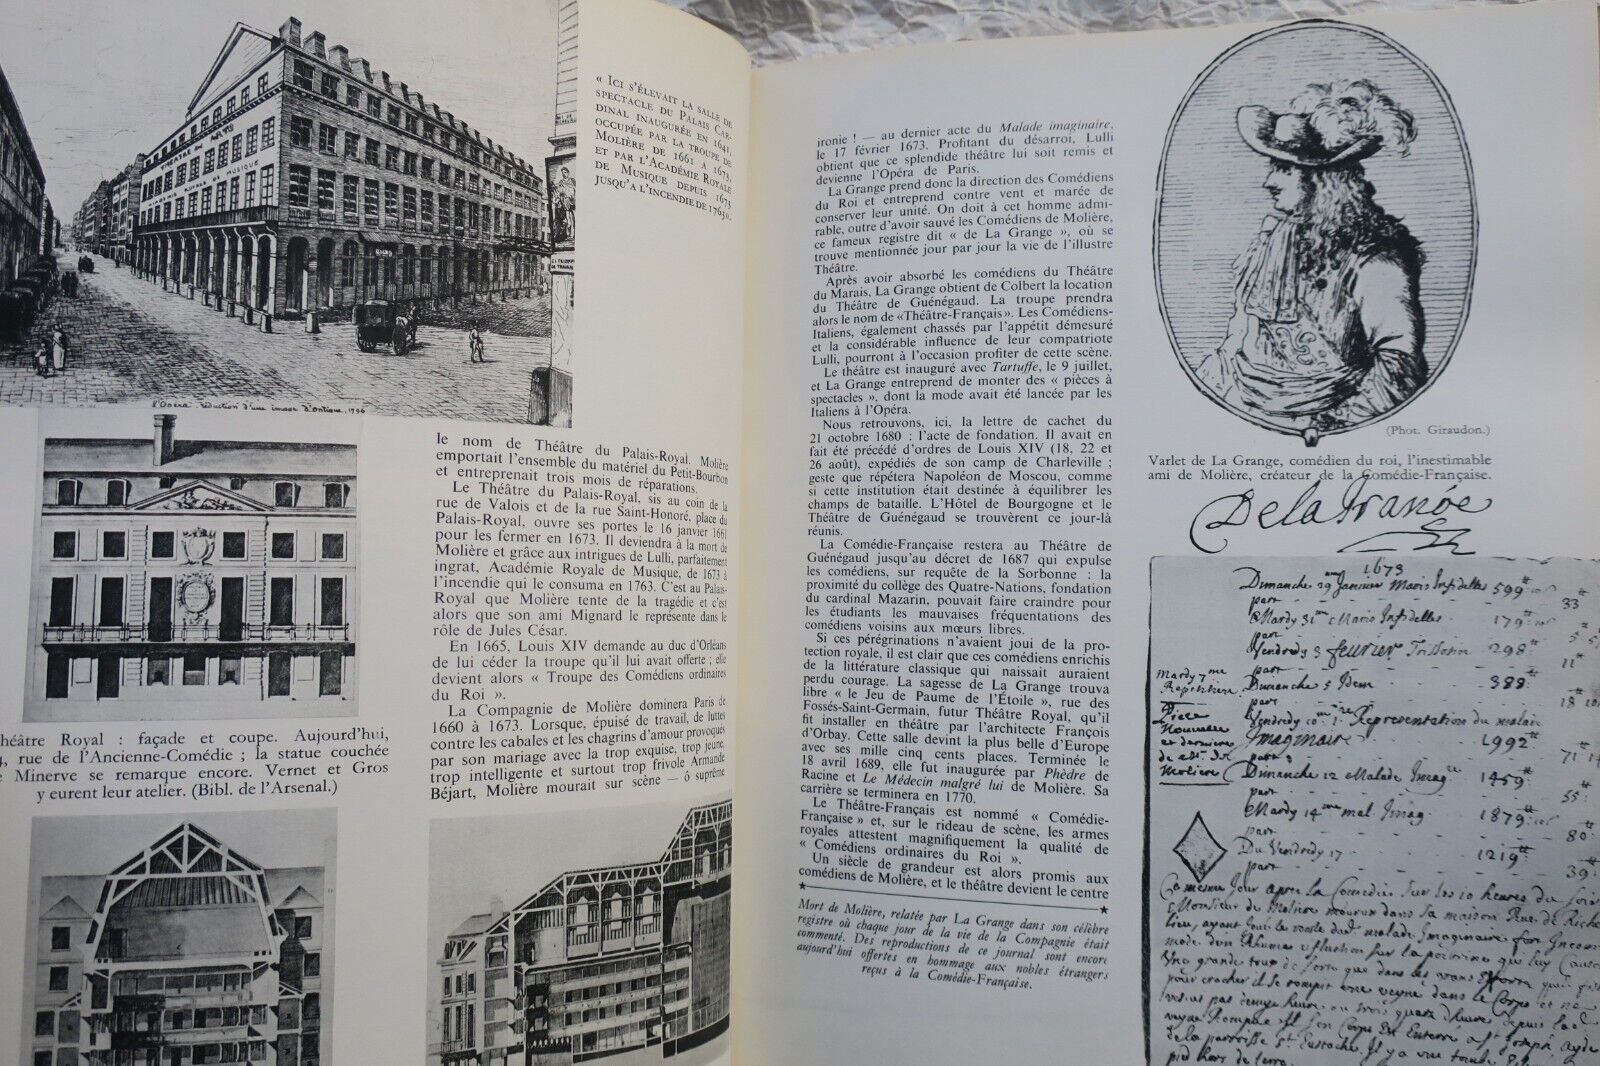 « Ici s'élevait la salle de
spectacle du Palais Car-
dinal inaugurée en 1641,
occupée par la troupe de
Molière de 1661 a 1673,
et par l'Académie Royale
de Musique depuis 1673
jusqu'a l'incendie de 1763».
l'Opéra. réduction d'une image d'optique. 1796
le nom de Théâtre du Palais-Royal. Molière
emportait l'ensemble du matériel du Petit-Bourbon
et entreprenait trois mois de réparations.
Le Théâtre du Palais-Royal, sis au coin de la
rue de Valois et de la rue Saint-Honoré, place du
Palais-Royal, ouvre ses portes le 16 janvier 1661
pour les fermer en 1673. Il deviendra à la mort de
Molière et grâce aux intrigues de Lulli, parfaitement
ingrat, Académie Royale de Musique, de 1673 à
l'incendie qui le consuma en 1763. C'est au Palais-
Royal que Molière tente de la tragédie et c'est
alors que son ami Mignard le représente dans le
rôle de Jules César.
En 1665, Louis XIV demande au duc d'Orléans
de lui céder la troupe qu'il lui avait offerte ; elle
devient alors « Troupe des Comédiens ordinaires
du Roi ».
La Compagnie de Molière dominera Paris de
1660 à 1673. Lorsque, épuisé de travail, de luttes
contre les cabales et les chagrins d'amour provoqués
par son mariage avec la trop exquise, trop jeune,
trop intelligente et surtout trop frivole Armande
Béjart, Molière mourait sur scène — ô suprême
héâtre Royal : façade et coupe. Aujourd'hui,
4, rue de l'Ancienne-Comédie ; la statue couchée
e Minerve se remarque encore. Vernet et Gros
y eurent leur atelier. (Bibl. de l'Arsenal.)
ironie ! — au dernier acte du Malade imaginaire,
le 17 février 1673. Profitant du désarroi, Lulli
obtient que ce splendide théâtre lui soit remis et
devienne l'Opéra de Paris.
La Grange prend donc la direction des Comédiens
du Roi et entreprend contre vent et marée de
conserver leur unité. On doit à cet homme admi-
rable, outre d'avoir sauvé les Comédiens de Molière,
ce fameux registre dit « de La Grange », où se
trouve mentionnée jour par jour la vie de l'illustre
Théâtre.
Après avoir absorbé les comédiens du Théâtre
du Marais, La Grange obtient de Colbert la location
du Théâtre de Guénégaud. La troupe prendra
alors le nom de «Théâtre-Français». Les Comédiens-
Italiens, également chassés par l'appétit démesuré
et la considérable influence de leur compatriote
Lulli, pourront à l'occasion profiter de cette scène.
Le théâtre est inauguré avec Tartuffe, le 9 juillet,
et La Grange entreprend de monter des « pièces à
spectacles », dont la mode avait été lancée par les
Italiens à l'Opéra.
Nous retrouvons, ici, la lettre de cachet du
21 octobre 1680 : l'acte de fondation. Il avait en
fait été précédé d'ordres de Louis XIV (18, 22 et
26 août), expédiés de son camp de Charleville ;
geste que répétera Napoléon de Moscou, comme
si cette institution était destinée à équilibrer les
champs de bataille. L'Hôtel de Bourgogne et le
Théâtre de Guénégaud se trouvèrent ce jour-là
réunis.
La Comédie-Française restera au Théâtre de
Guénégaud jusqu'au décret de 1687 qui expulse
les comédiens, sur requête de la Sorbonne : la
proximité du collège des Quatre-Nations, fondation
du cardinal Mazarin, pouvait faire craindre pour
les étudiants les mauvaises fréquentations des
comédiens voisins aux mœurs libres.
Si ces pérégrinations n'avaient joui de la pro-
tection royale, il est clair que ces comédiens enrichis
de la littérature classique qui naissait auraient
perdu courage. La sagesse de La Grange trouva
libre « le Jeu de Paume de l'Étoile », rue des
Fossés-Saint-Germain, futur Théâtre Royal, qu'il
fit installer en théâtre par l'architecte François
d'Orbay. Cette salle devint la plus belle d'Europe
avec ses mille cinq cents places. Terminée le
18 avril 1689, elle fut inaugurée par Phèdre de
Racine et Le Médecin malgré lui de Molière. Sa
carrière se terminera en 1770.
Le Théâtre-Français est nommé « Comédie-
Française » et, sur le rideau de scène, les armes
royales attestent magnifiquement la qualité de
« Comédiens ordinaires du Roi ».
Un siècle de grandeur est alors promis aux
comédiens de Molière, et le théâtre devient le centre
Mort de Molière, relatée par La Grange dans son célèbre
registre où chaque jour de la vie de la Compagnie était
commenté. Des reproductions de ce journal sont encore
aujourd'hui offertes en hommage aux nobles étrangers
reçus à la Comédie-Française.
(Phot. Giraudon.)
Varlet de La Grange, comédien du roi, l'inestimable
ami de Molière, créateur de la Comédie-Française.
De la Grange
1673
Dimanche 29 Janvier Maris Infidelles 599
part 33
Mardy 31 Maris Infidelles 179
part
Vendredy 3 feurier Trissotin 298
part 11
Dimanche 5 Idem 388
part 18
Mardy 7
Piece
Nouuelle
et derniere
de Mr de
Moliere
Vendredy 10 Representation du malade
Imaginaire 1992
Dimanche 12 Malade Imag 1459
part 55
Mardy 14 mal. Imag 1879
part 80
Du Vendredy 17 1219
part 39
Ce mesme Jour apres la Comedie Sur les 10 heures du soir
Monsieur de Moliere mourut dans sa maison Rue de Riche